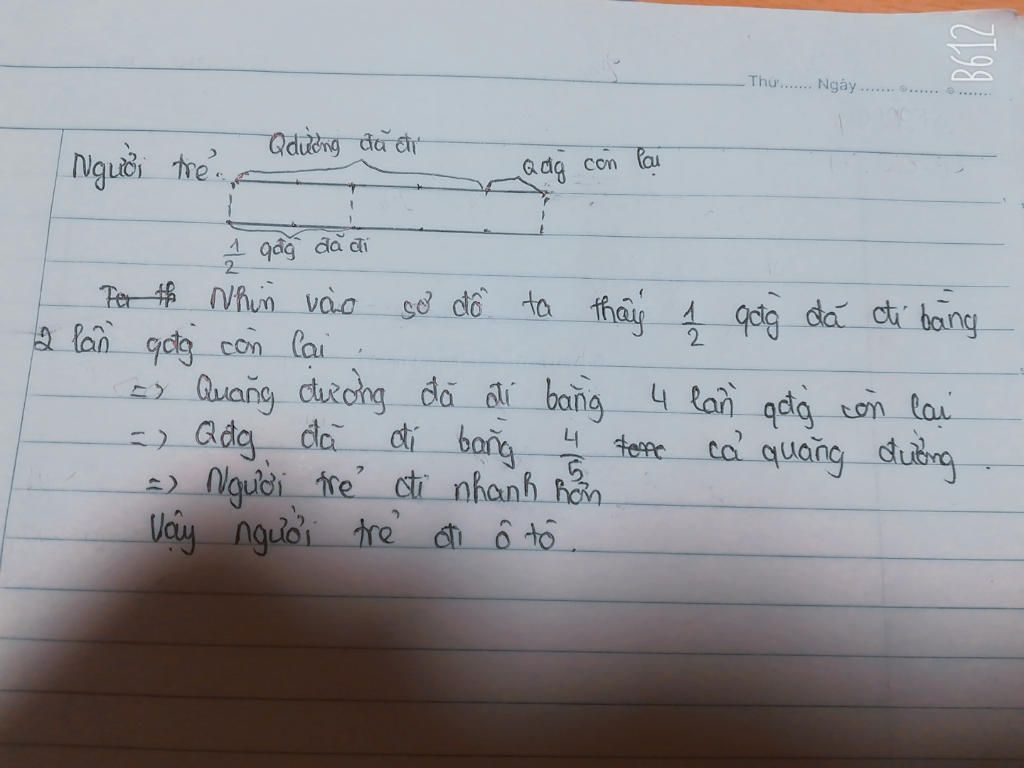 B612
Thứ....... Ngày ....... ....... .......
Qđường đã đi
Người trẻ.
Qđg còn lại
1/2 qđg đã đi
Nhìn vào sơ đồ ta thấy 1/2 qđg đã đi bằng
2 lần qđg còn lại.
=> Quãng đường đã đi bằng 4 lần qđg còn lại
=> Qđg đã đi bằng 4/5 cả quãng đường.
=> Người trẻ đi nhanh hơn
Vậy người trẻ đi ô tô.